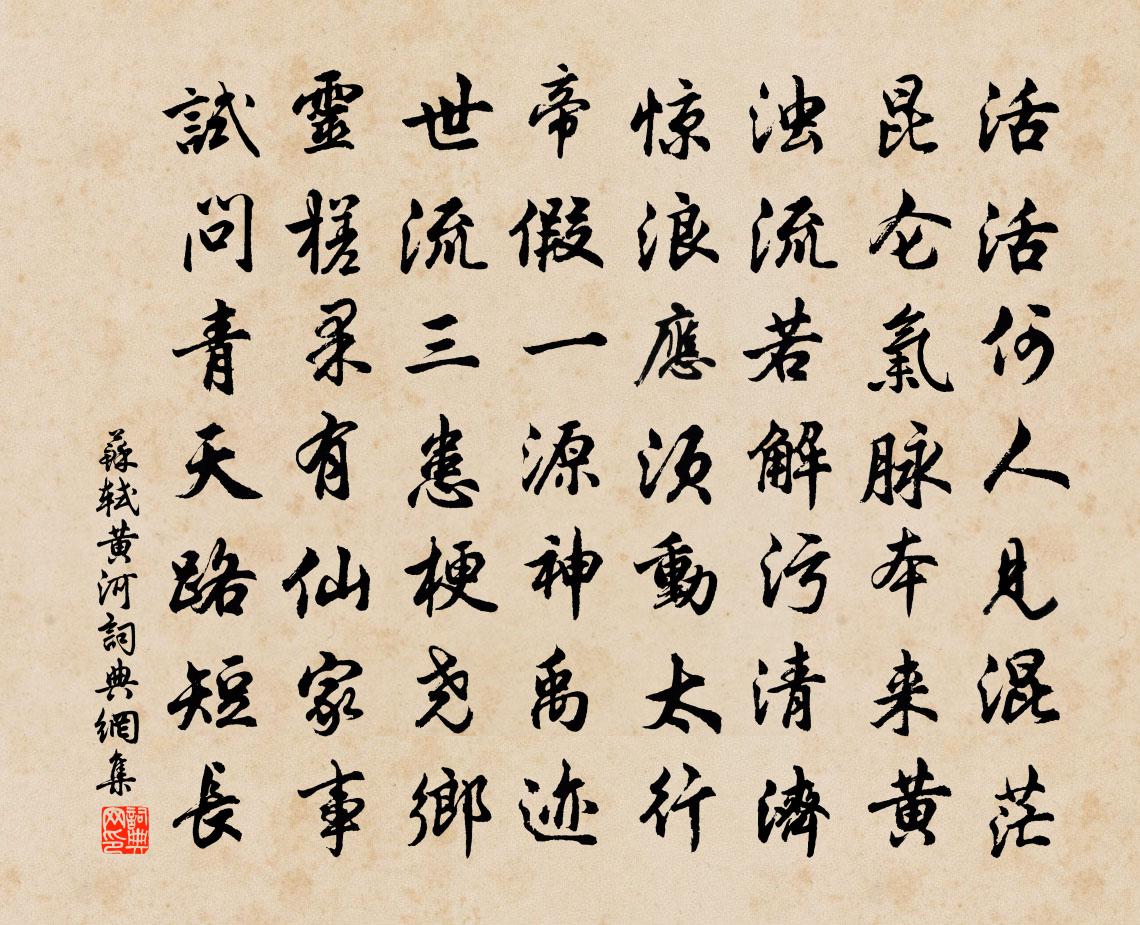 活活何人見混茫
昆仑氣脉本来黄
浊流若解污清濟
惊浪應须動太行
帝假一源神禹迹
世流三患梗尧鄉
靈槎果有仙家事
試問青天路短長
蘇轼黄河詞典網集
詞典网印